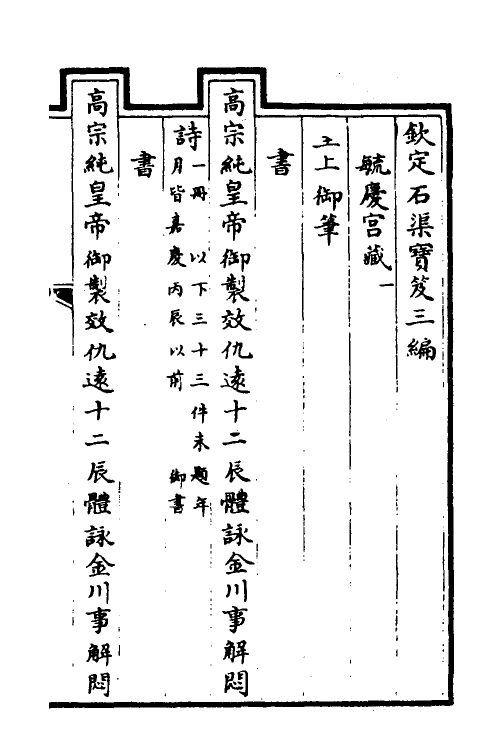 欽定石渠寶笈三編
毓慶宫藏一
上御筆
書
高宗純皇帝御製效仇遠十二辰體詠金川事解悶
詩一冊 以下三十三件未題年
月皆嘉慶丙辰以前 御書
書
高宗純皇帝御製效仇遠十二辰體詠金川事解悶